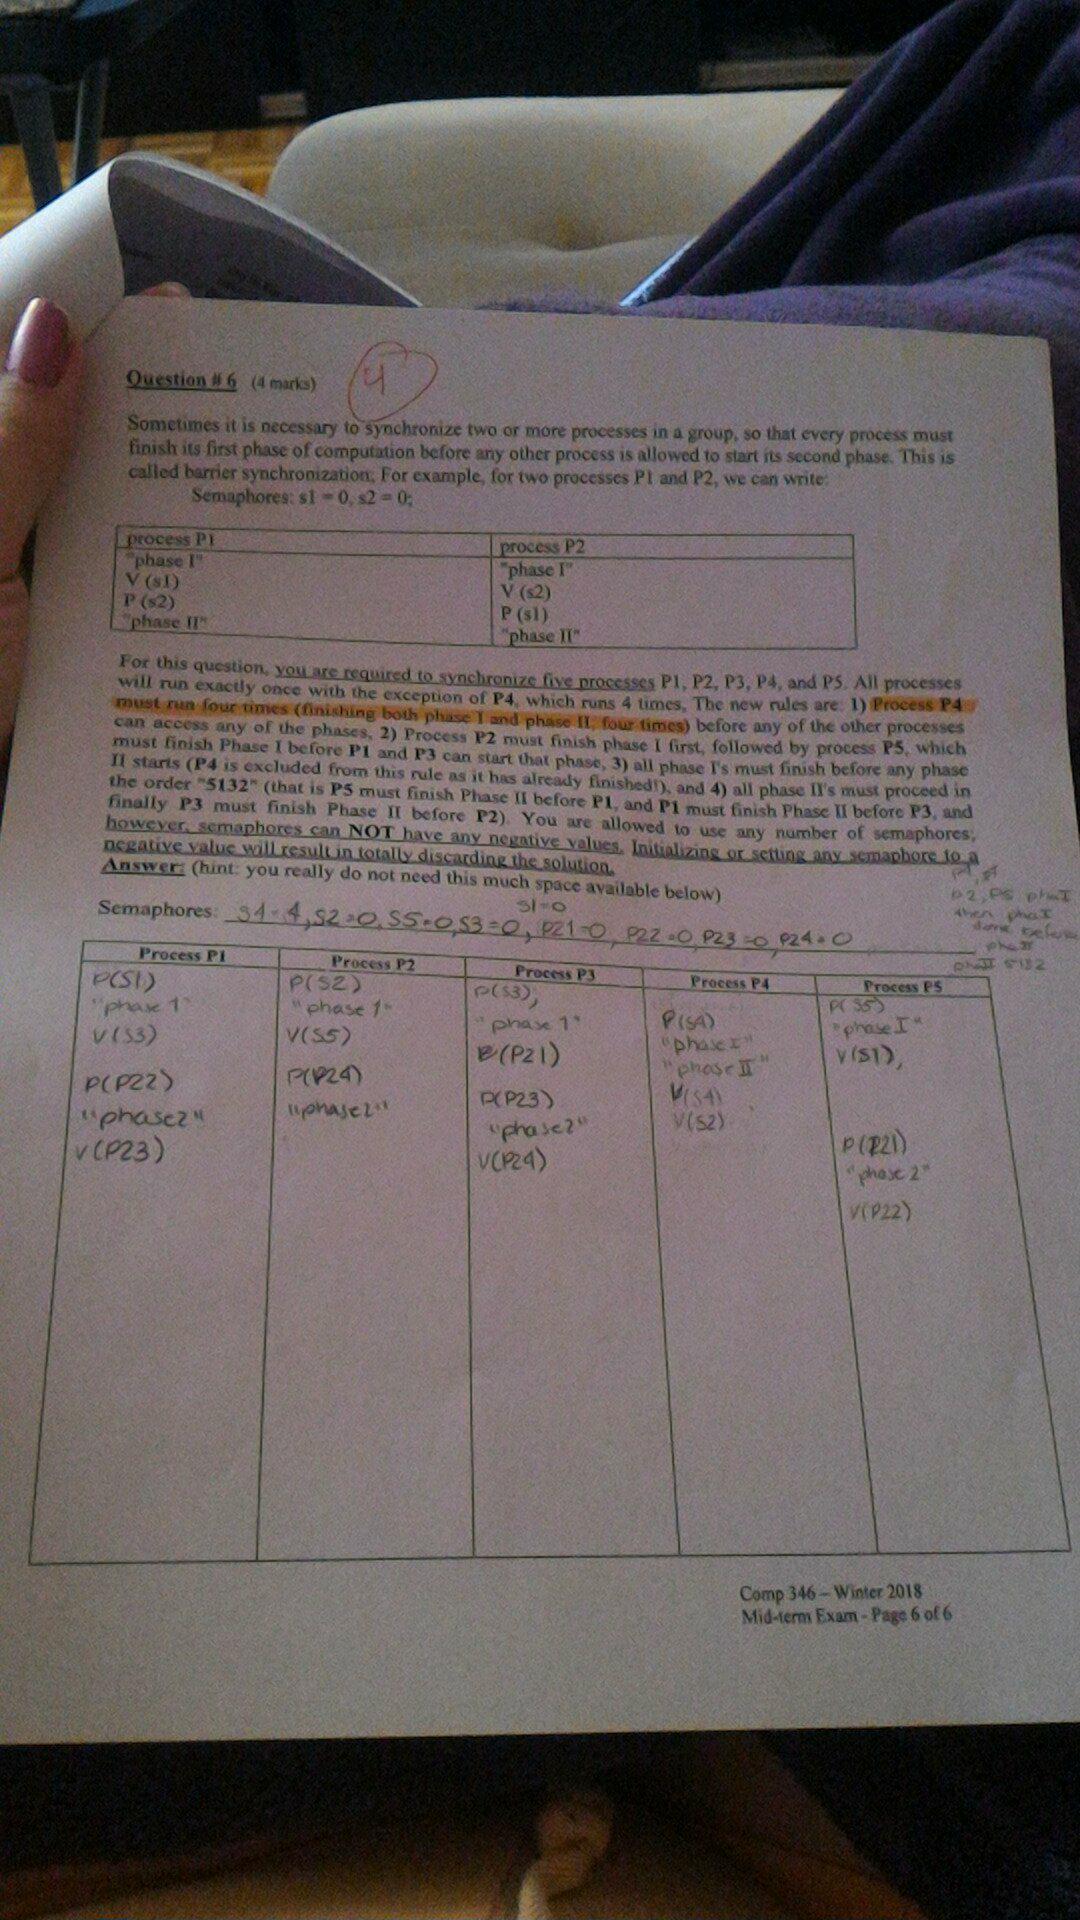 Question # 6 (4 marks)
4
Sometimes it is necessary to synchronize two or more processes in a group, so that every process must
finish its first phase of computation before any other process is allowed to start its second phase. This is
called barrier synchronization; For example, for two processes P1 and P2, we can write:
Semaphores: s1 = 0, s2 = 0;
process P1
"phase I"
V (s1)
P (s2)
"phase II"
process P2
"phase I"
V (s2)
P (s1)
"phase II"
For this question, you are required to synchronize five processes P1, P2, P3, P4, and P5. All processes
will run exactly once with the exception of P4, which runs 4 times. The new rules are: 1) Process P4
must run four times (finishing both phase I and phase II, four times) before any of the other processes
can access any of the phases, 2) Process P2 must finish phase I first, followed by process P5, which
must finish Phase I before P1 and P3 can start that phase, 3) all phase I's must finish before any phase
II starts (P4 is excluded from this rule as it has already finished!), and 4) all phase II's must proceed in
the order "5132" (that is P5 must finish Phase II before P1, and P1 must finish Phase II before P3, and
finally P3 must finish Phase II before P2). You are allowed to use any number of semaphores;
however, semaphores can NOT have any negative values. Initializing or setting any semaphore to a
negative value will result in totally discarding the solution.
Answer: (hint: you really do not need this much space available below)
P2, P5 phaI
then phaI
done before
phaII
phaII 5132
S1=0
Semaphores: S4=4, S2=0, S5=0, S3=0, P21=0, P22=0, P23=0, P24=0
Process P1
P(S1)
"phase 1"
V(S3)
P(P22)
"phase2"
V(P23)
Process P2
P(S2)
"phase 1"
V(S5)
P(P24)
"phase2"
Process P3
P(S3),
"phase 1"
(P21)
P(P23)
"phase2"
V(P24)
Process P4
P(S4)
"phase I"
"phase II"
V(S4)
V(S2)
Process P5
P(S5)
"phase I"
V(S1),
P(P21)
"phase 2"
V(P22)
Comp 346 – Winter 2018
Mid-term Exam - Page 6 of 6